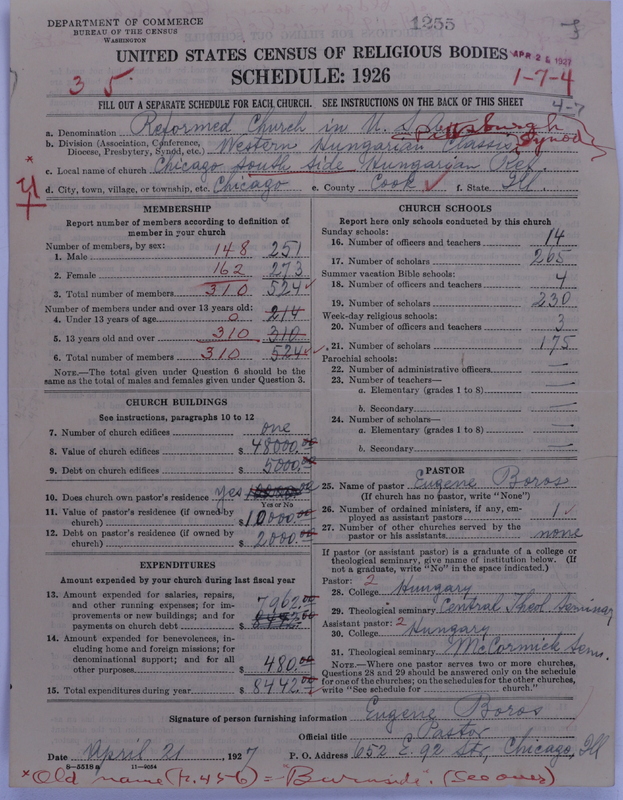 DEPARTMENT OF COMMERCE
BUREAU OF THE CENSUS
WASHINGTON
1255
UNITED STATES CENSUS OF RELIGIOUS BODIES
APR 26 1927
SCHEDULE: 1926
3 5.
1-7-4
FILL OUT A SEPARATE SCHEDULE FOR EACH CHURCH. SEE INSTRUCTIONS ON THE BACK OF THIS SHEET
4-7
a. Denomination Reformed Church in U. S.
b. Division (Association, Conference, Diocese, Presbytery, Synod, etc.) Western Hungarian Classis, Pittsburgh Synod
c. Local name of church Chicago South Side Hungarian Ref.
d. City, town, village, or township, etc. Chicago e. County Cook f. State Ill.
MEMBERSHIP
Report number of members according to definition of
member in your church
Number of members, by sex:
1. Male 148 251
2. Female 162 273
3. Total number of members 310 524
Number of members under and over 13 years old:
4. Under 13 years of age 0 214
5. 13 years old and over 310 310
6. Total number of members 310 524
NOTE.—The total given under Question 6 should be
same as the total of males and females given under Question 3.
CHURCH BUILDINGS
See instructions, paragraphs 10 to 12
7. Number of church edifices one
8. Value of church edifices $ 48000.00
9. Debt on church edifices $ 5000.00
10. Does church own pastor's residence yes
Yes or No
11. Value of pastor's residence (if owned by
church) $ 10000.00
12. Debt on pastor's residence (if owned by
church) $ 2000.00
EXPENDITURES
Amount expended by your church during last fiscal year
13. Amount expended for salaries, repairs,
and other running expenses; for im-
provements or new buildings; and for
payments on church debt $ 7962.00
14. Amount expended for benevolences, in-
cluding home and foreign missions; for
denominational support; and for all
other purposes $ 480.00
15. Total expenditures during year $ 8442.00
CHURCH SCHOOLS
Report here only schools conducted by this church
Sunday schools:
16. Number of officers and teachers 14
17. Number of scholars 205
Summer vacation Bible schools:
18. Number of officers and teachers 4
19. Number of scholars 230
Week-day religious schools:
20. Number of officers and teachers 3
21. Number of scholars 175
Parochial schools:
22. Number of administrative officers —
23. Number of teachers—
a. Elementary (grades 1 to 8) —
b. Secondary —
24. Number of scholars—
a. Elementary (grades 1 to 8) —
b. Secondary —
PASTOR
25. Name of pastor Eugene Boros
(If church has no pastor, write "None")
26. Number of ordained ministers, if any, em-
ployed as assistant pastors 1
27. Number of other churches served by the
pastor or his assistants none
If pastor (or assistant pastor) is a graduate of a college or
theological seminary, give name of institution below. (If
not a graduate, write "No" in the space indicated.)
Pastor: 2
28. College Hungary
29. Theological seminary Central Theol. Seminary
Assistant pastor: 2
30. College Hungary
31. Theological seminary McCormick Sem.
NOTE.—Where one pastor serves two or more churches,
Questions 28 and 29 should be answered only on the schedule
for one of the churches; on the schedules for the other churches,
write "See schedule for church."
Signature of person furnishing information Eugene Boros
Official title Pastor
Date April 21, 1927 P. O. Address 652 E. 92 Str., Chicago, Ill
8—5518 a 11—9054
*Old name (p. 4 5-6) = "Burnside". (See over)